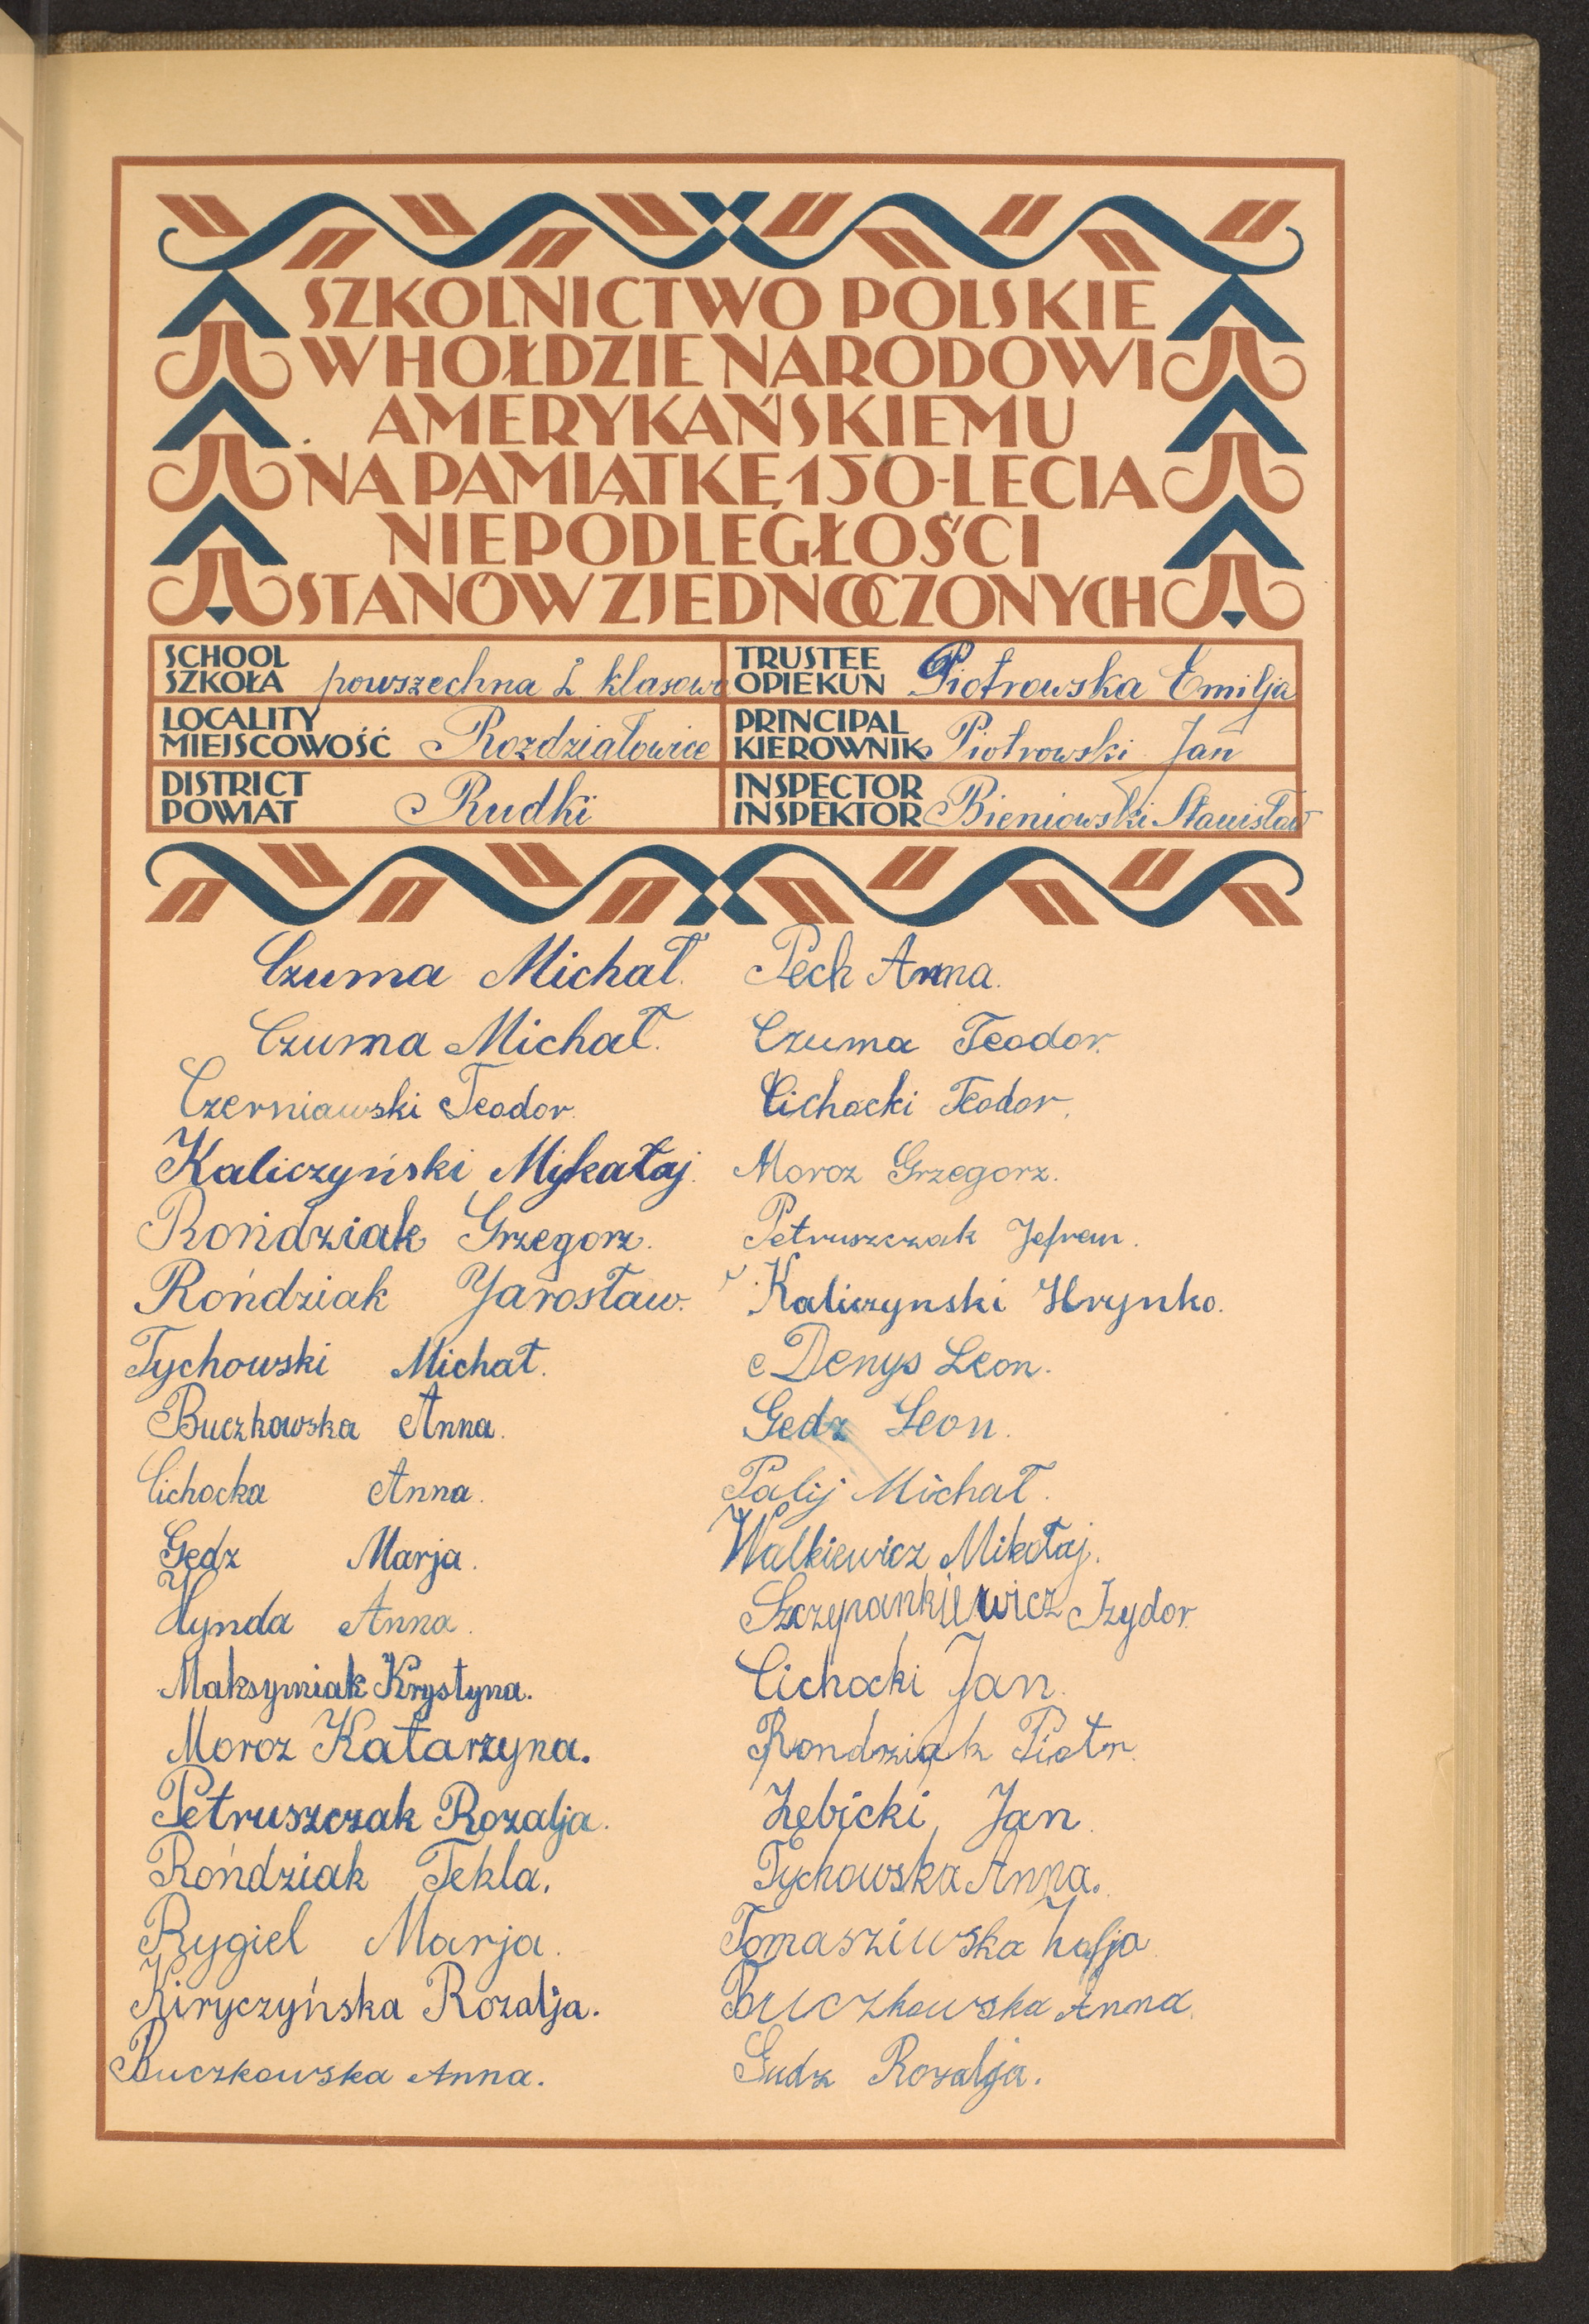 SZKOLNICTWO POLSKIE
W HOŁDZIE NARODOWI
AMERYKAŃSKIEMU
NA PAMIĄTKĘ 150-LECIA
NIEPODLEGŁOŚCI
STANÓW ZJEDNOCZONYCH
SCHOOL
SZKOŁA powszechna 2 klasowa
TRUSTEE
OPIEKUN Piotrowska Emilja
LOCALITY
MIEJSCOWOŚĆ Rozdziałowice
PRINCIPAL
KIEROWNIK Piotrowski Jan
DISTRICT
POWIAT Rudki
INSPECTOR
INSPEKTOR Bieniowski Stanisław
Czuma Michał.
Czuma Michał.
Czerniawski Teodor.
Kaliczyński Mykałaj.
Rońdziak Grzegorz.
Rońdziak Yarosław.
Tychowski Michał.
Buczkowska Anna.
Cichocka Anna.
Gedz Marja.
Hynda Anna.
Maksymiak Krystyna.
Moroz Katarzyna.
Petruszczak Rozalja.
Rońdziak Tekla.
Rygiel Marja.
Kiryczyńska Rozalja.
Buczkowska Anna.
Pech Anna.
Czuma Teodor.
Cichocki Teodor.
Moroz Grzegorz.
Petruszczak Jefrem.
Kaliczynski Hrynko.
Denys Leon.
Gedz Leon.
Palij Michał.
Walkiewicz Mikołaj.
Szczepankiewicz Izydor.
Cichocki Jan.
Rondziak Piotr.
Zębicki Jan.
Tychowska Anna.
Tomasziwska
Buczkowska Anna.
Gudz Rozalja.